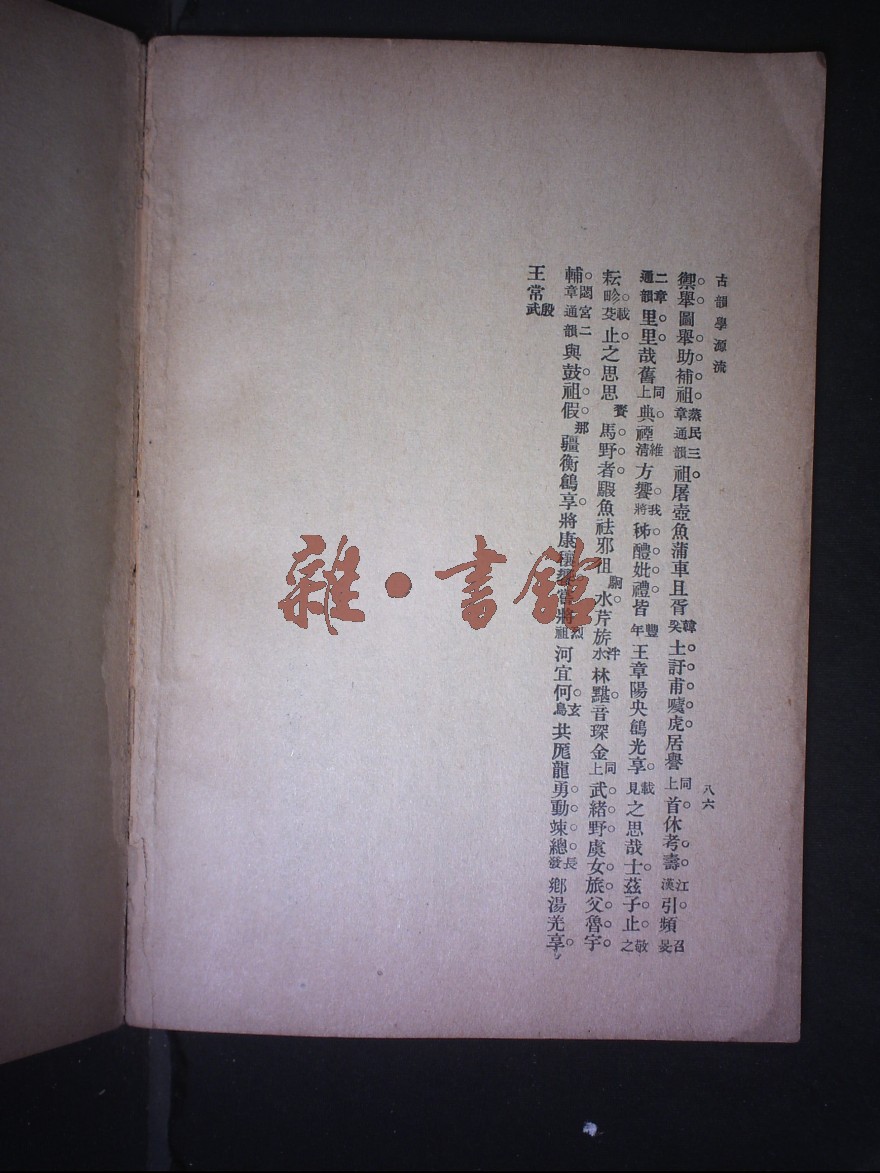 古韻學源流
八六
禦舉圖舉助補祖蒸民三章通韻祖屠壺魚蒲車且胥韓奕土訏甫噳虎居譽同上首休考壽江漢引頻召旻
二章通韻里里哉舊同上典禋維清方饗我將秭醴妣禮皆豐年王章陽央鶬光享載見之思哉士茲子止敬之
耘畛載芟止之思思賚馬野者騢魚祛邪徂駉水芹旂泮水林黮音琛金同上武緒野虞女旅父魯宇
輔閟宮二章通韻與鼓祖假那疆衡鶬享將康穰饗嘗將烈祖河宜何玄鳥共厖龍勇動竦總長發鄉湯羌享
王常殷武
雜·書館